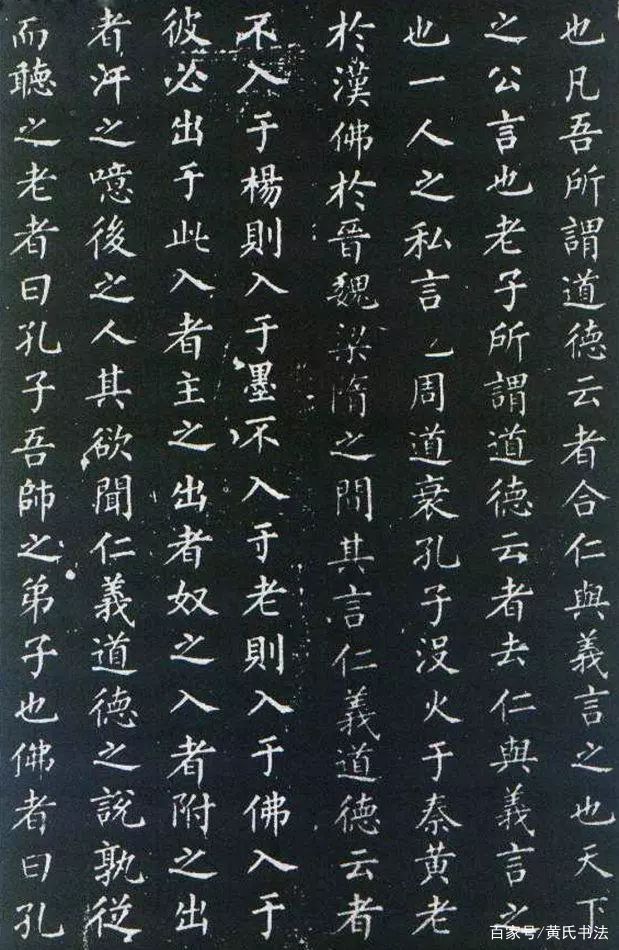 也凡吾所謂道德云者合仁與義言之也天下
之公言也老子所謂道德云者去仁與義言之
也一人之私言也周道衰孔子没火于秦黄老
於漢佛於晉魏梁隋之間其言仁義道德云者
不入于楊則入于墨不入于老則入于佛入于
彼必出于此入者主之出者奴之入者附之出
者汙之噫後之人其欲聞仁義道德之說孰從
而聽之老者曰孔子吾師之弟子也佛者曰孔
百家号/黄氏书法